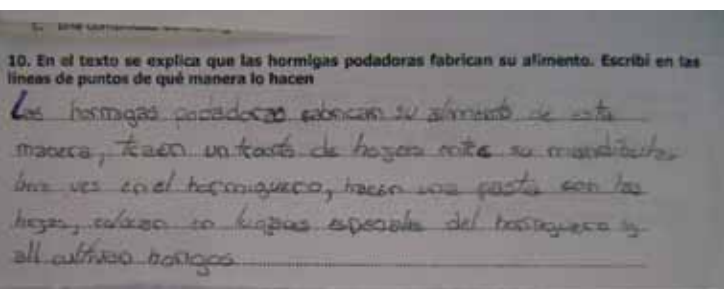 10. En el texto se explica que las hormigas podadoras fabrican su alimento. Escribí en las
líneas de puntos de qué manera lo hacen
Las hormigas podadoras fabrican su alimento de esta
manera, traen un de su mandibulas
una ves en el hormiguero, hacen una pasta con las
hojas, colocan en especiales del hormiguero y
all cultivan hongos